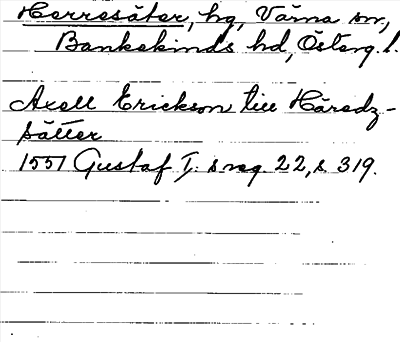 Herresäter, hg, Värna sn,
Bankekinds hd, Österg. l.
Axell Erickson till Häradz-
sätter
1551 Gustaf I:s reg. 22, s. 319.